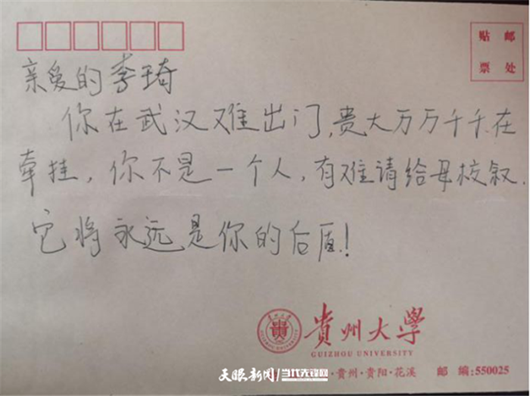 贴 邮
票 处
亲爱的李琦
你在武汉难出门,贵大万万千千在
牵挂,你不是一个人,有难请给母校叙.
它将永远是你的后盾!
贵州大学
GUIZHOU UNIVERSITY
天眼新闻 当代先锋网
·贵州·贵阳·花溪 邮编:550025